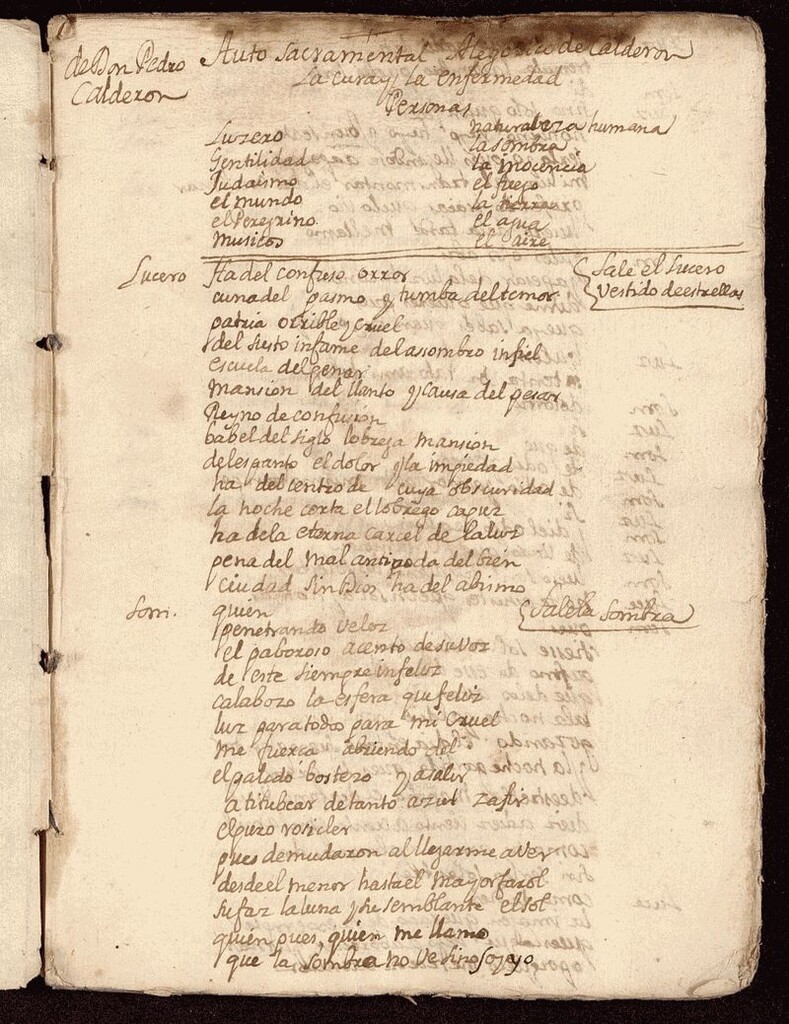 de Don Pedro
Calderon
Auto Sacramental Alegorico de Calderon
La cura y la enfermedad
Personas
Luzero
Gentilidad
Judaismo
el mundo
el Peregrino
Musicos
naturaleza humana
la sombra
la inocencia
el fuego
la tierra
el agua
el aire
Lucero Ha del confuso orror
Sale el Lucero
Vestido de estrellas
cuna del pasmo y tumba del temor
patria orrible y cruel
del susto infame del assombro infiel
escuela del penar
mansion del llanto y causa del pesar
Reyno de confusion
babel del siglo lobrega mansion
del espanto el dolor y la impiedad
ha del centro de cuya obscuridad
la noche corta el lobrego capuz
ha dela eterna carcel de la luz
pena del mal antipoda del bien
ciudad sin Dios ha del abismo
Som. quien
Sale la Sombra
penetrando veloz
el paboroso acento de su voz
de este siempre infeliz
calabozo la esfera que feliz
luz para todos para mi cruel
me fuerça abriendo del
el palido bostezo y a salir
a titubear de tanto azul zafir
el puro rosicler
pues demudaron al llegarme a ver
desde el menor hasta el mayor farol
su faz la luna y su semblante el sol
quien pues, quien me llamo
que la sombra no ve sino so yo